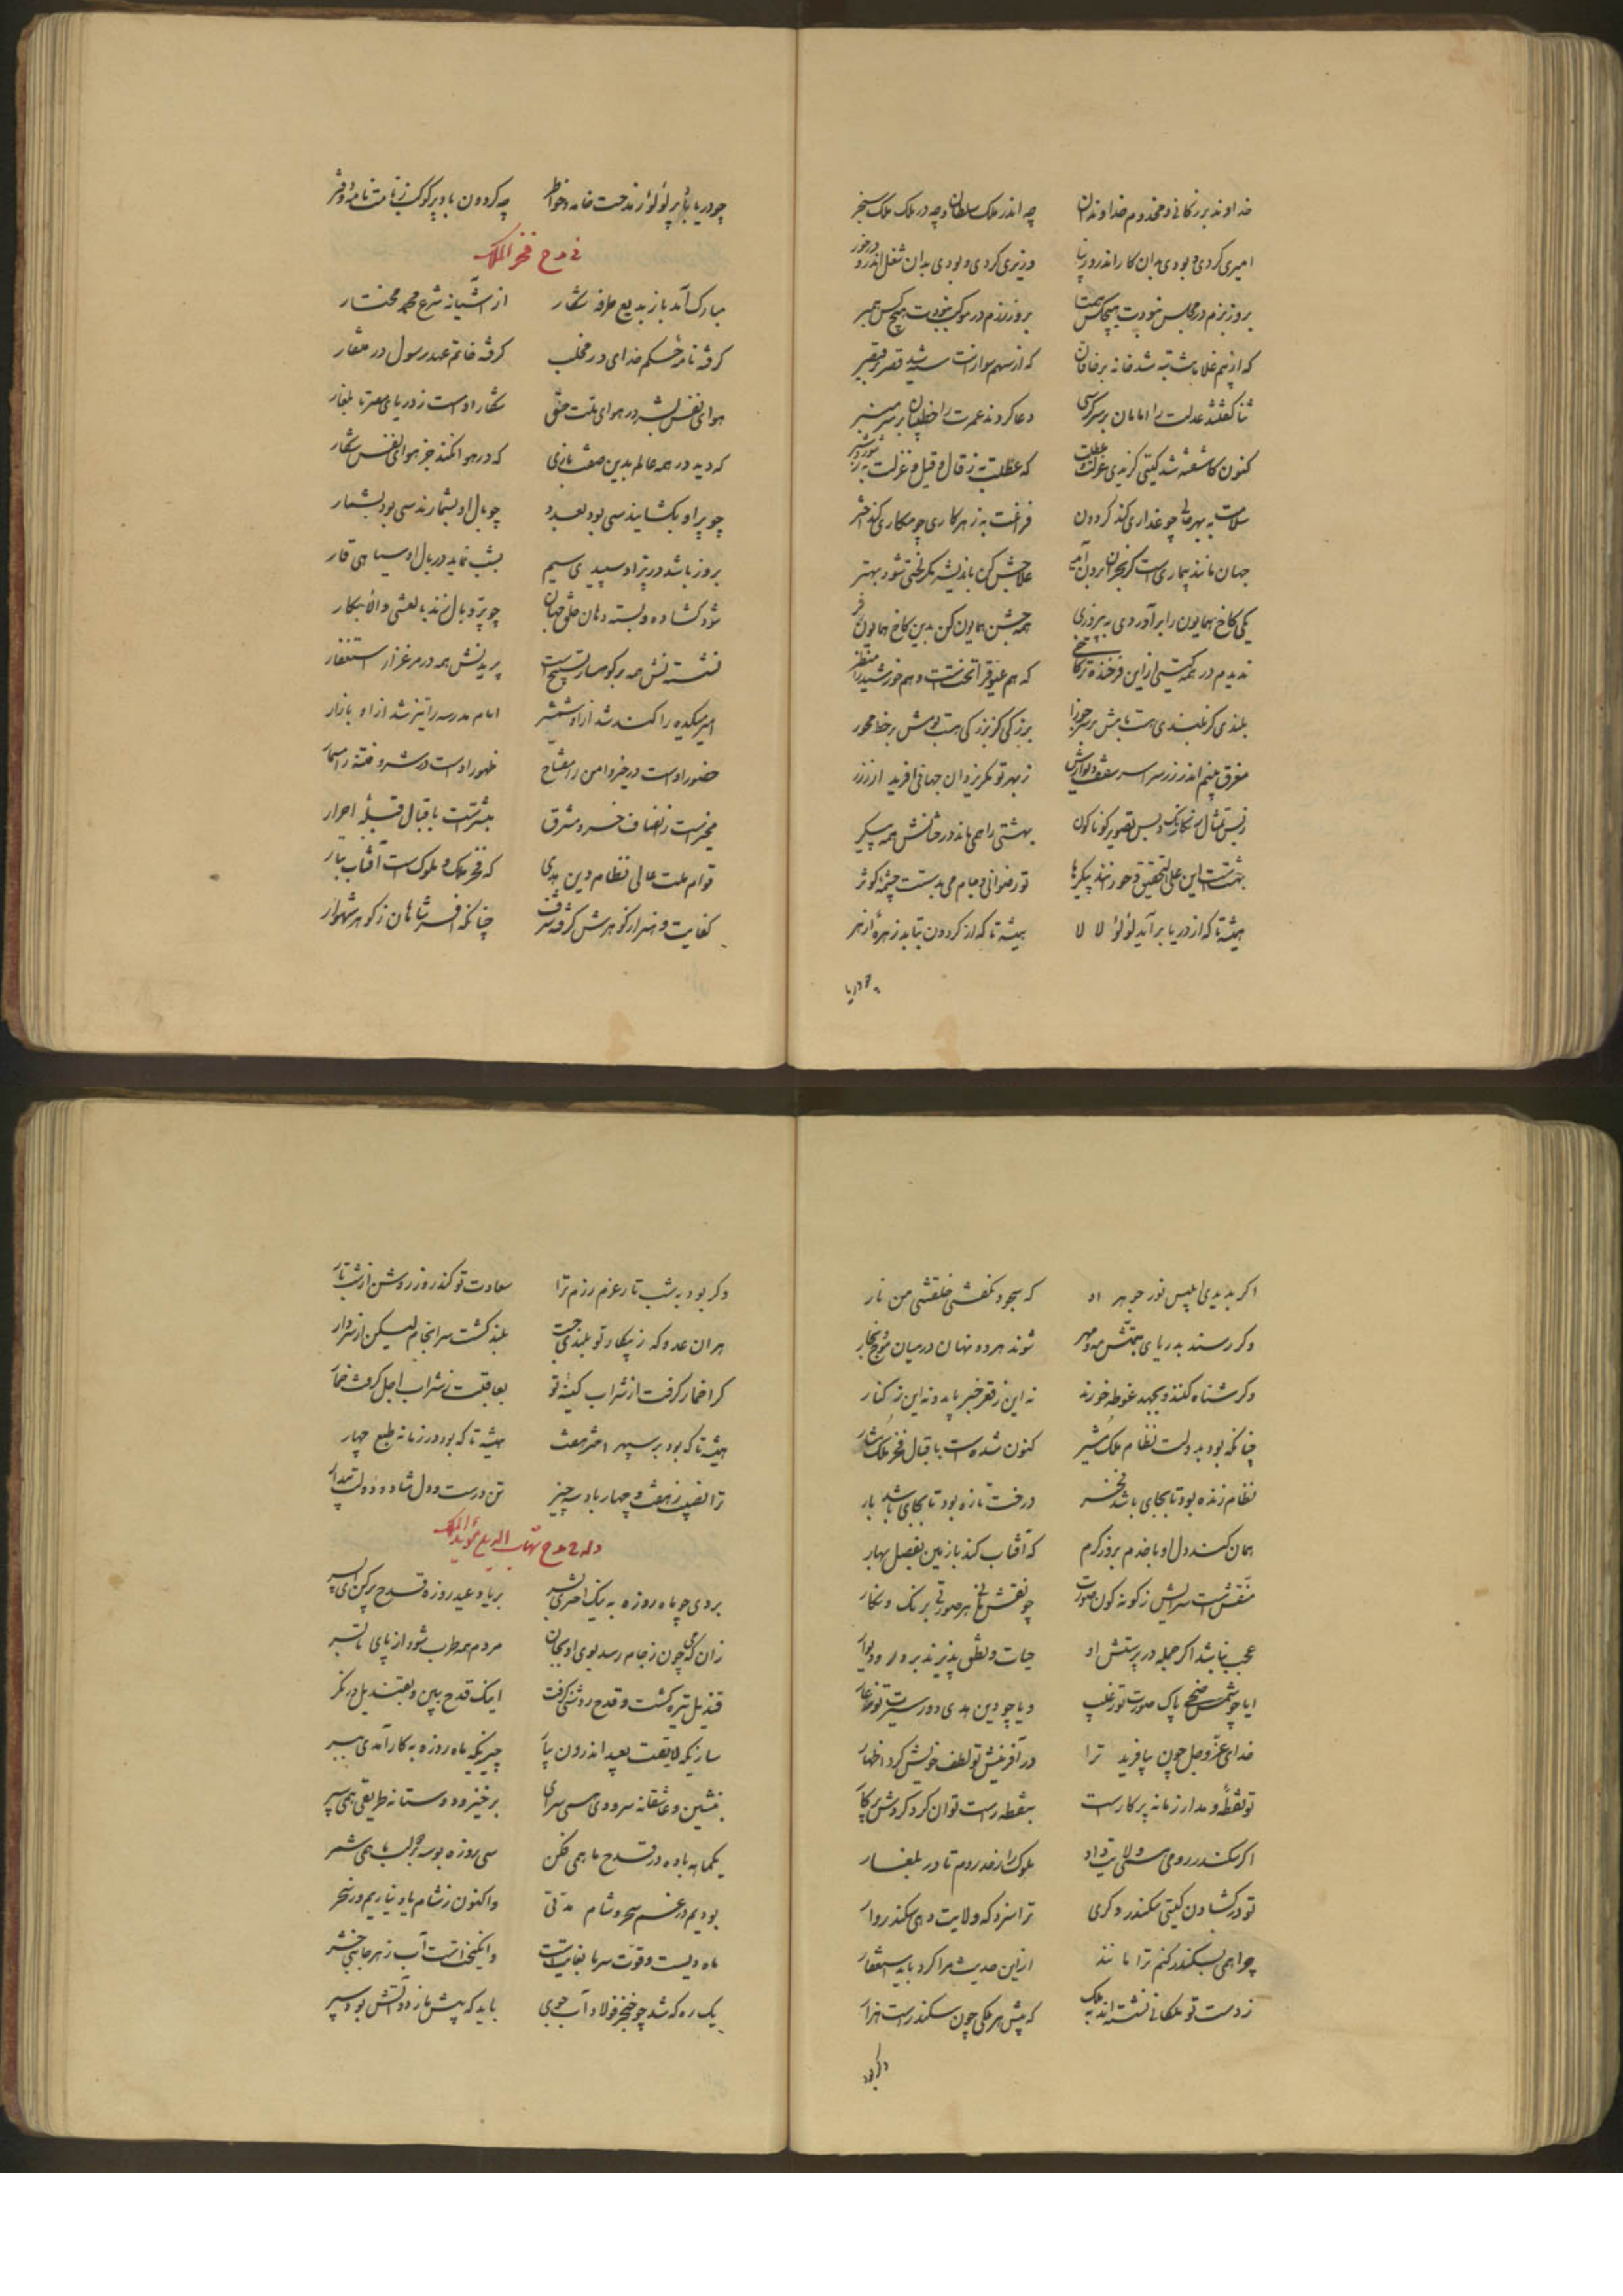 خداوند بزرگانی و مخدوم خداوندان چه اندر ملک سلطان و چه در ملک ملک سنجر
امیری کردی و بودی بدان کار اندرون زیبا وزیری کردی و بودی بدان شغل اندرون درخور
بروز بزم در مجلس نبودت هیچکس همتا بروز رزم در موکب نبودت هیچ کس همبر
که از بیم غلامانت تبه شد خانه بر خاقان که از سهم سوارانت سیه شد قصر بر قیصر
ثنا گفتند عدلت را امامان بر سر کرسی دعا کردند عمرت را خطیبان بر سر منبر
کنون کاشفته شد گیتی گزیدی عزلت و عطلت که عطلت به ز قال و قیل و عزلت به ز شور و شر
سلامت به بهر حالی چو غداری کند گردون فراغت به ز هر کاری چو مکاری کند اختر
جهان مانند بیماری است کز بحران برون آید علاجش کن باندیشه مگر لختی شود بهتر
یکی کاخ همایون را برآوردی به پیروزی همه جشن همایون کن بدین کاخ همایون فر
ندیدم در همه گیتی از این فرخنده تر کاخی که هم عیوق را تختست و هم خورشید را منظر
بلندی کز بلندی هست تابش بر سر جوزا بزرگی کز بزرگی هست بومش بر خط محور
مغرق بینم اندر زر سراسر سقف و دیوارش ز بهر تو مگر یزدان جهانی آفرید از زر
ز بس تمثال رنگارنگ و بس تصویر گوناگون بهشتی را همی ماند درختانش همه پیکر
بهشتست این علی التحقیق و حورانند پیکرها تو رضوانی و جام می بدستت چشمه کوثر
همیشه تا که از دریا برآید لؤلؤ لالا همیشه تا که از گردون بتابد زهره ازهر
چو دریا
چو دریا باد پر لؤلؤ ز مدحت خانه و خاطر چه گردون باد پر کوکب ز نامت نامه و دفتر
در مدح فخر الملک
مبارک آمد باز بدیع طرفه شکار از آشیانه شرع محمد مختار
گرفته نامه حکم خدای در مخلب گرفته خاتم عهد رسول در منقار
هوای نفس بشر در هوای ملت حق شکار اوست ز دریای مصر تا بلغار
که دید در همه عالم بدین صفت بازی که در هوا نکند جز هوای نفس شکار
چو پر او بگشایند سی بود بعدد چو بال او بشمارند سی بود بشمار
بروز باشد در پر او سپیدی سیم بشب نماید در بال او سیاهی قار
شود گشاده و بسته دهان خلق جهان چو پر و بال زند بالعشی والابکار
نشستنش همه بر کوهسار تسبیح است پریدنش همه در مرغزار استغفار
امیر میکده را کند شد از او شمشیر امام مدرسه را تیز شد از او بازار
حضور اوست در خیر و امن را مفتاح ظهور اوست در شر و فتنه را مسمار
مخبرست ز انصاف خسرو مشرق مبشرست باقبال قبله احرار
قوام ملت عالی نظام دین هدی که فخر ملک و ملوک است آفتاب تبار
کفایت و هنر از گوهرش گرفته شرف چنانکه افسر شاهان ز گوهر شهوار
اگر بدیدی ابلیس نور جوهر او که سجود نگفتی خلقتنی من نار
وگر رسند بدریای همتش مه و مهر شوند هر دو نهان در میان موج بحار
وگر شناه کنند و بجهد غوطه خورند نه این ز قعر خبر یابد و نه این ز کنار
چنانکه بود بدولت نظام ملک مشیر کنون شده است باقبال فخر ملک مشار
نظام زنده بود تا بجای باشد فخر درخت تازه بود تا بجای باشد بار
همان کند دل او با خدم بروز کرم که آفتاب کند با زمین بفصل بهار
منقش است سرایش ز گونه گون صورت چو نقش مانی هر صورتی برنگ و نگار
عجب نباشد اگر جمله در پرستش او حیات و نطق پذیرند بر در و دیوار
ایا چو شمس ضحی پاک صورت تو ز عیب و یا چو دین هدی دور سیرت تو ز عار
خدای عز و جل چون بیافرید ترا در آفرینش تو لطف خویش کرد اظهار
تو نقطه و مدار زمانه پرگارست بنقطه راست توان کرد گردش پرگار
اگر سکندر رومی ستد ولایت و داد ملوک را ز در روم تا در بلغار
تو در گشادن گیتی سکندر دگری ترا سزد که ولایت دهی سکندروار
چرا همی بسکندر کنم ترا مانند ازین حدیث مرا کرد باید استغفار
ز دست تو ملکانی نشسته اند بملک که پیش هر ملکی چون سکندر است هزار
وگر بود
وگر بود به شب تار عزم رزم ترا سعادت تو کند روز روشن از شب تار
هر آن عدو که ز پیکار تو بلندی جست بلند گشت سرانجام لیکن از سر دار
کرا خمار گرفت از شراب کینه تو بعاقبت ز شراب اجل گرفت خمار
همیشه تا که بود بر سپهر اختر هفت همیشه تا که بود در زمانه طبع چهار
ترا نصیب ز هفت و چهار باد سه چیز تن درست و دل شاد و دولت بیدار
وله در مدح شهاب الدین مؤید الملک
بردی چو ماه روزه به نیک اختری بسر بر یاد عید روزه قدح پر کن ای پسر
زان می که چون ز جام رسد بوی او بجان مردم همه طرب شود از پای تا بسر
قندیل تیره گشت و قدح روشنی گرفت اینک قدح ببین و بقندیل درنگر
سازیکه لایقست بعید اندرون بیار چیزیکه ماه روزه به کار آمدی ببر
بنشین و عاشقانه سرودی همی سرای برخیز و دوستانه طریقی همی سپر
یکماهه باده در قدح ما همی فکن سی روزه بوسه بر لب ما همی شمر
بودیم در غم سحر و شام مدتی واکنون ز شام یاد نیاریم و ز سحر
ماه دیست و قوت سرما بغایتست وانگیختست آب ز هر جانبی حشر
یک ره که شد چو خنجر فولاد آب جوی باید که پیش ما زدو آتش بود سپر